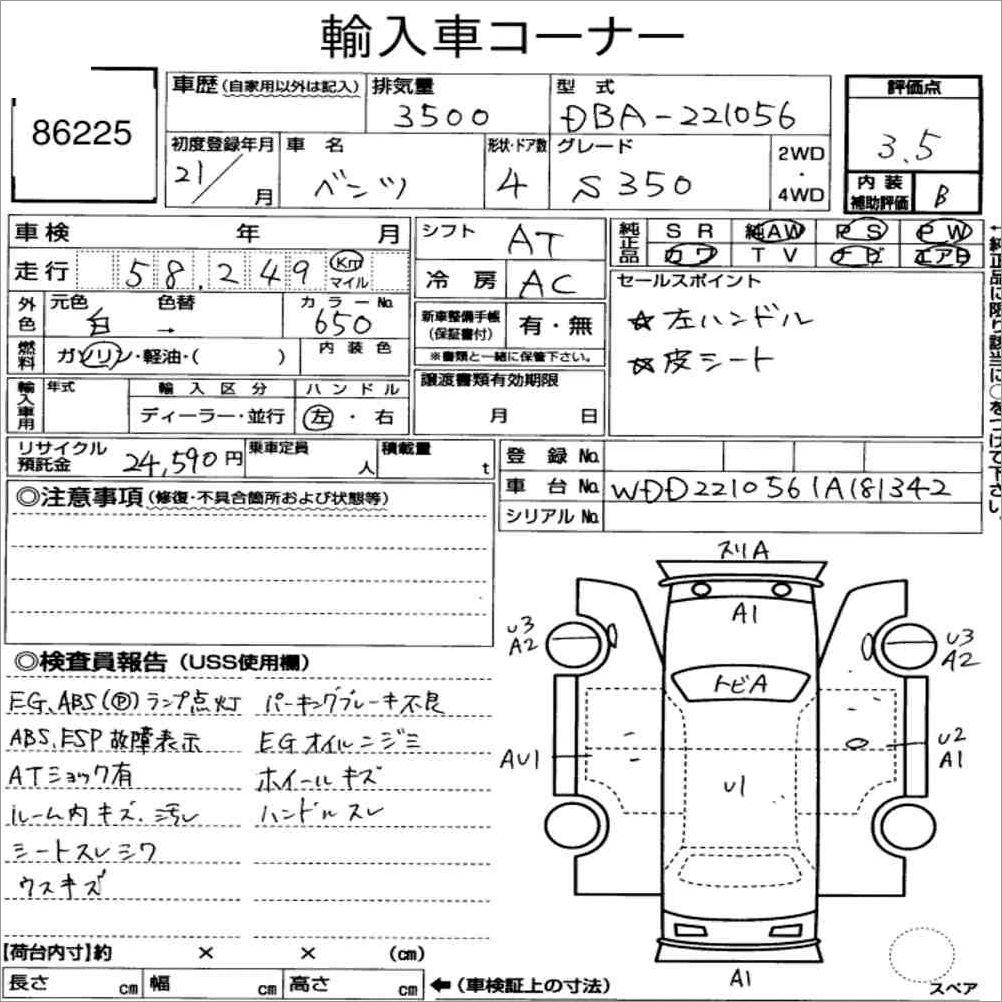 輸入車コーナー
86225
車歴 (自家用以外は記入) 排気量 3500 型式 DBA-221056 評価点 3.5
初度登録年月 21/ 月 車名 ベンツ 形状・ドア数 4 グレード S350 2WD・4WD 内装補助評価 B
車検 年 月 シフト AT 純正品 SR 純AW PS PW
走行 58,249 Km マイル 冷房 AC カワ TV ナビ エアB
外色 元色 白 → 色替 カラーNo. 650 新車整備手帳 (保証書付) 有・無 セールスポイント
※書類と一緒に保管下さい。 ☆左ハンドル
燃料 ガソリン・軽油・( ) 内装色 譲渡書類有効期限 ☆皮シート
輸入車用 年式 輸入区分 ハンドル 月 日
ディーラー・並行 左・右
←純正品に限り該当に○をつけて下さい
リサイクル預託金 24,590円 乗車定員 人 積載量 t 登録No.
車台No. WDD2210561A181342
シリアルNo.
◎注意事項 (修復・不具合箇所および状態等)
スリA
A1
U3 A2
U3 A2
トビA
AU1
U2 A1
U1
A1
スペア
◎検査員報告 (USS使用欄)
EG、ABS(Ⓟ)ランプ点灯 パーキングブレーキ不良
ABS、ESP故障表示 EGオイルニジミ
ATショック有 ホイールキズ
ルーム内キズ、汚レ ハンドルスレ
シートスレシワ
ウスキズ
【荷台内寸】約 × × (cm)
長さ cm 幅 cm 高さ cm ←(車検証上の寸法)